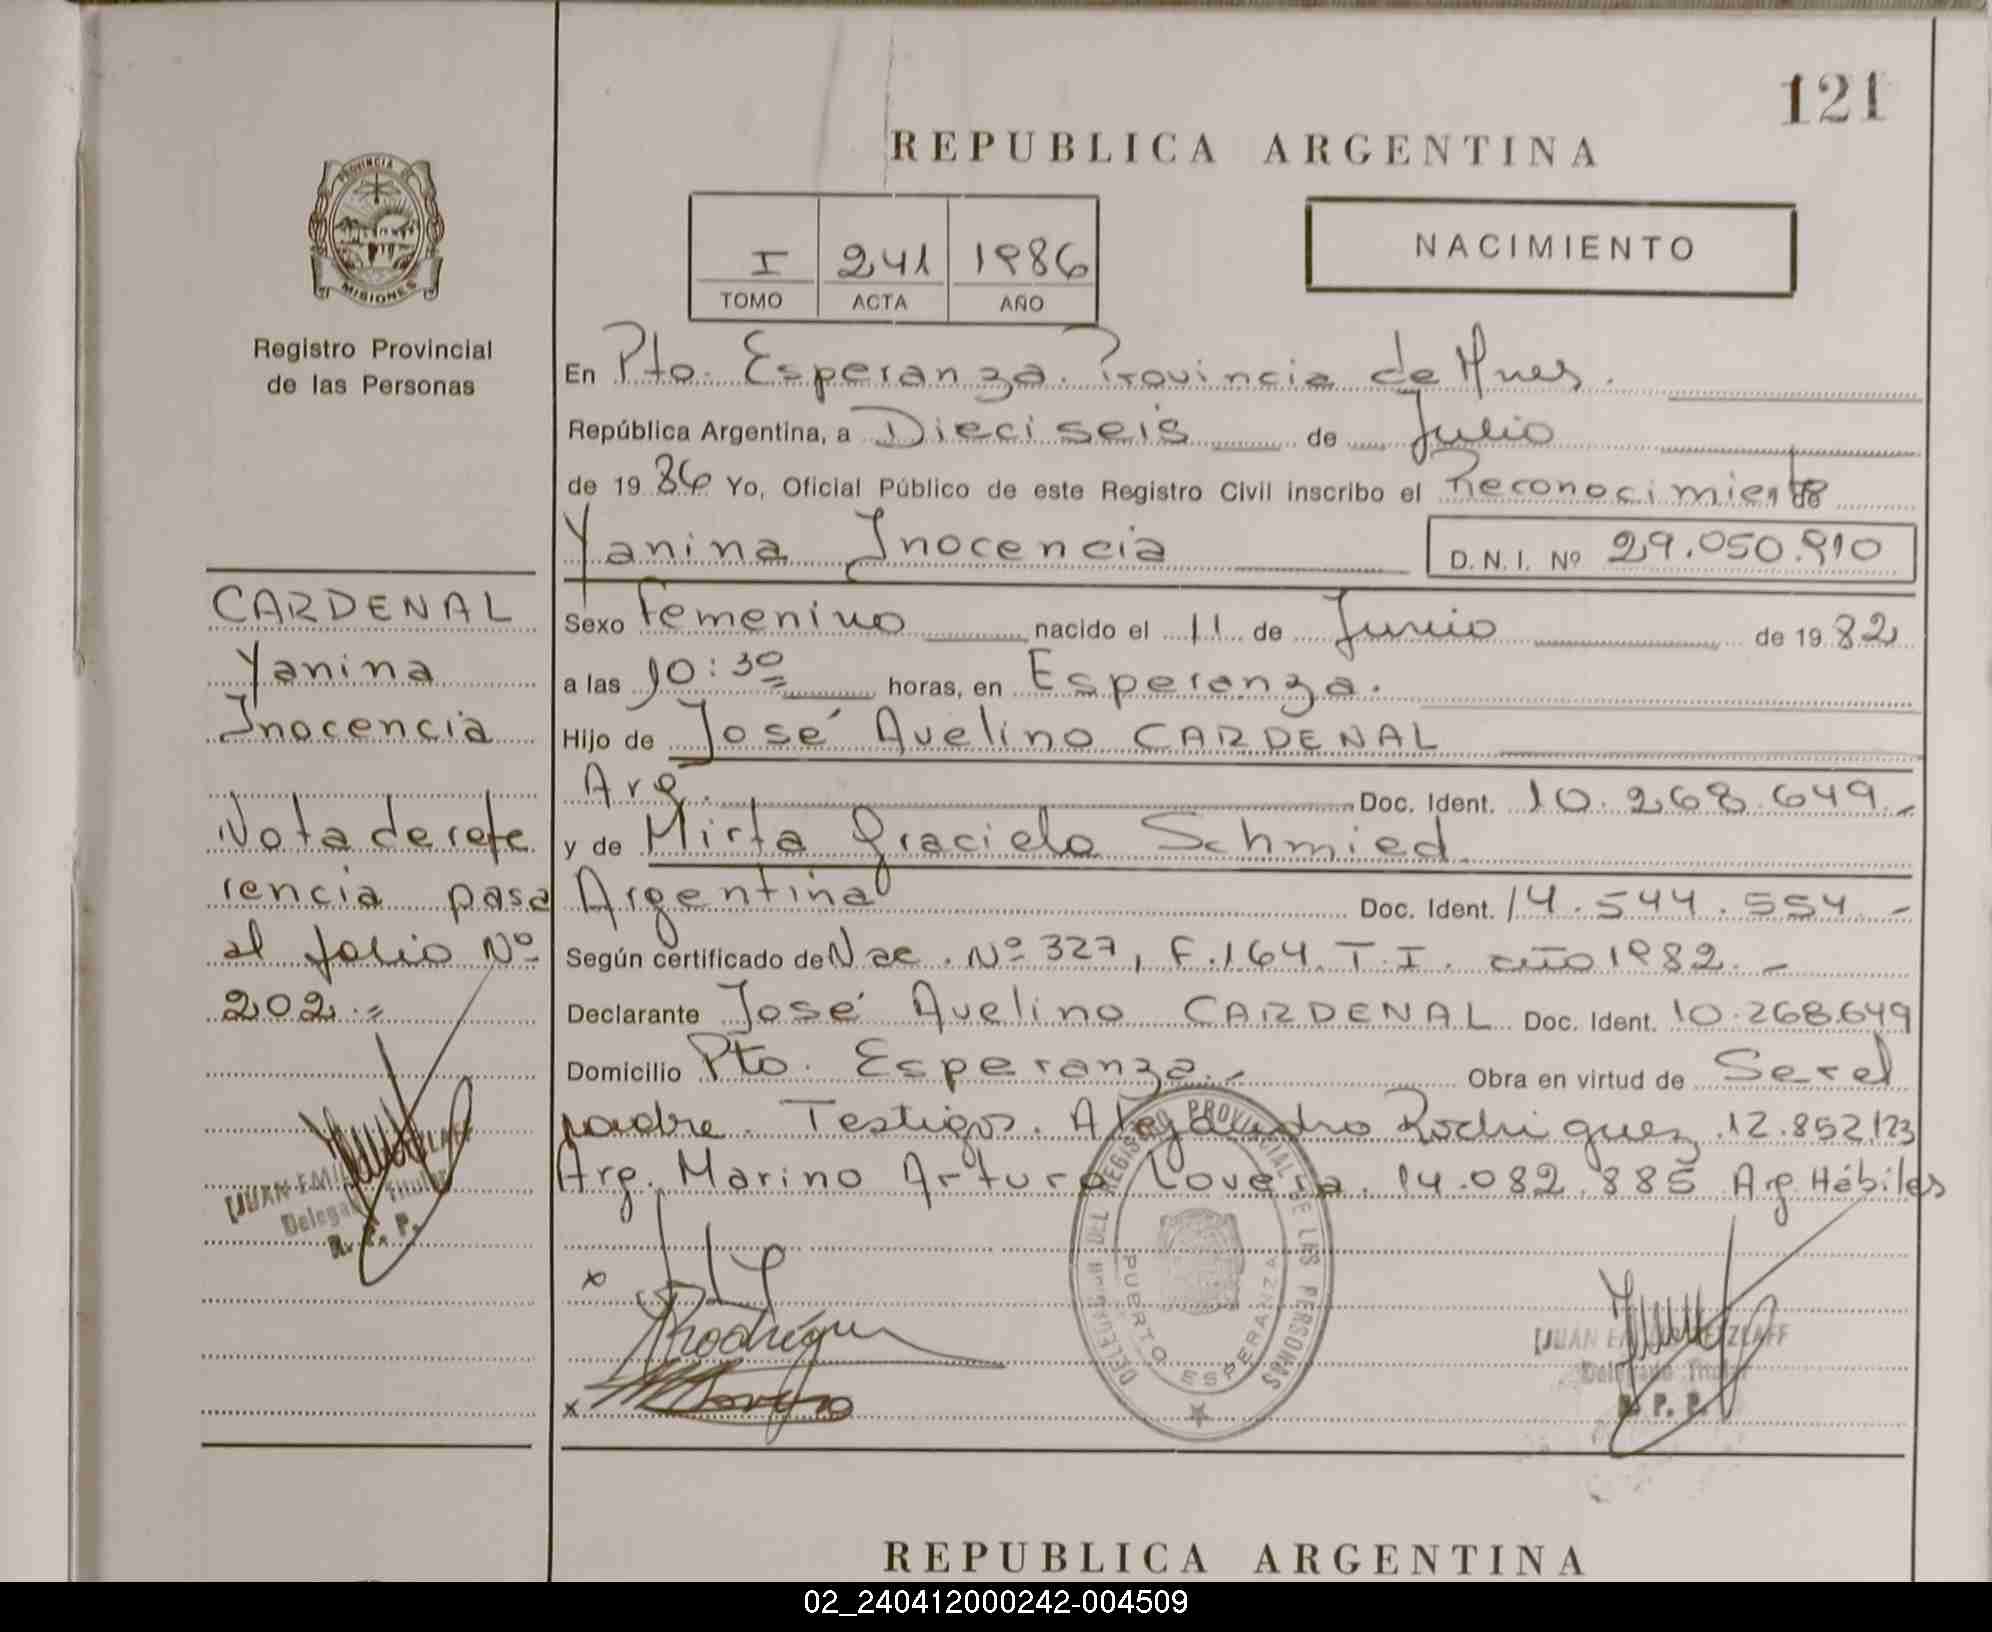 121
REPUBLICA ARGENTINA
PROVINCIA DE
MISIONES
Registro Provincial
de las Personas
I 241 1986
TOMO ACTA AÑO
NACIMIENTO
En Pto. Esperanza. Provincia de Mnes.
República Argentina, a Dieciseis de Julio
de 1986 Yo, Oficial Público de este Registro Civil inscribo el Reconocimiento de
Yanina Inocencia D. N. I. Nº 29.050.910
Sexo Femenino nacido el 11 de Junio de 1982
a las 10:30 horas, en Esperanza.
Hijo de José Avelino CARDENAL
Arg. Doc. Ident. 10.268.649.-
y de Mirta Graciela Schmied
Argentina Doc. Ident. 14.544.554.-
Según certificado de Nac. Nº 327, F.164 T.I. año 1982.-
Declarante José Avelino CARDENAL Doc. Ident. 10.268.649
Domicilio Pto. Esperanza.- Obra en virtud de Ser el
padre. Testigos. Alejandro Rodriguez 12.852.123
Arg. Marino Arturo Lovera. 14.082.885 Arg. Hábiles
CARDENAL
Yanina
Inocencia
Nota de refe
rencia pasa
al folio Nº
202.=
JUAN EMI
Delegado Titular
R. P. P.
x
Rodríguez
x
DELEGACION DEL REGISTRO PROVINCIAL DE LAS PERSONAS
PUERTO ESPERANZA
Delegado Titular
R. P. P.
REPUBLICA ARGENTINA
02_240412000242-004509